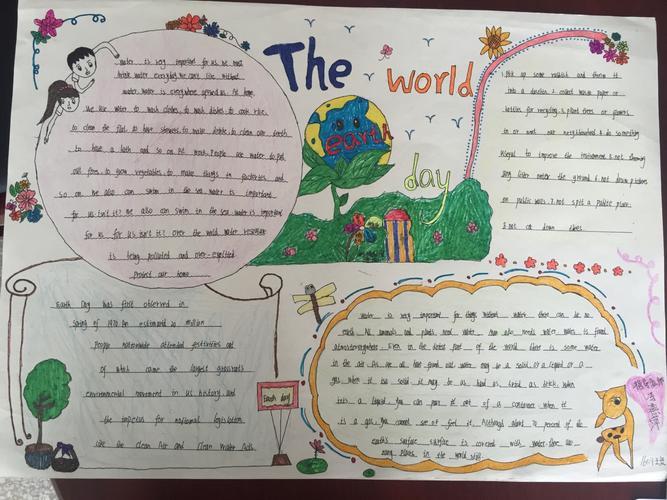 The world
earth
day
Water is very important for us we must
drink water everyday We can't live without
water. water is everywhere around us. At home
We use water to wash clothes, to wash dishes to cook rice
to clean the flat, to have showers, to make drinks, to clean our teeth
to have a bath and so on At work, People use water to
out fires, to grow vegetables to make things in factories and
so on we also can swim in the sea water is important
for us isn't it? we also can swim in the sea water is important
for us for us isn't it? over the world water resources
is being polluted and over-expoited
Project our home
1. Pick up some rubbish and throw it
into a dustbin 2. collect waste paper or
bottles for recycling 3. plant trees or flowers
in or near our neighbourhood 4. do something
to improve the 5. not throwing
any litter onto the ground 6. not
on public walls 7. not spit a public place
8. not cut down trees
Earth Day was first observed in
Spring of 1970. An estimated 20 million
People nationwide attended festivities out
of which came the largest grassroots
environmental movement in us history and
the impetus for national legislation
like the Clean Air and Clean Water Acts
Earth day
Water is very important for things without water there can be no
earth All animals and plants need water. Man also needs water water is found
everywhere Even in the driest part of the world there is some water
in the air. As we all have found out water may be a solid, or a liquid or a
gas when it is a solid it may be as hard as brick when
it's a liquid you can pour it out of a container when it
is a gas you cannot see or feel it. Although about 70 percent of the
earth's surface surface is covered with water there are
many places in the world still